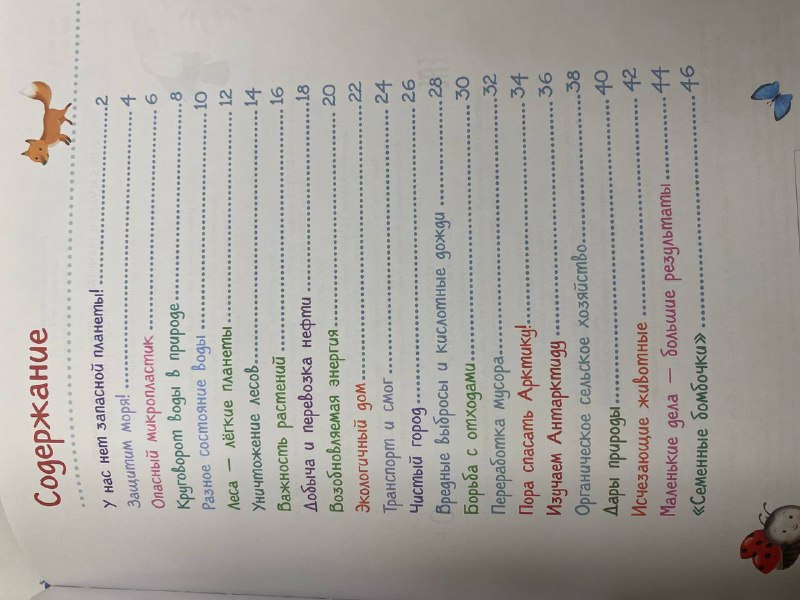 Содержание
У нас нет запасной планеты! 2
Защитим моря! 4
Опасный микропластик 6
Круговорот воды в природе 8
Разное состояние воды 10
Леса — лёгкие планеты 12
Уничтожение лесов 14
Важность растений 16
Добыча и перевозка нефти 18
Возобновляемая энергия 20
Экологичный дом 22
Транспорт и смог 24
Чистый город 26
Вредные выбросы и кислотные дожди 28
Борьба с отходами 30
Переработка мусора 32
Пора спасать Арктику! 34
Изучаем Антарктиду 36
Органическое сельское хозяйство 38
Дары природы 40
Исчезающие животные 42
Маленькие дела — большие результаты 44
«Семенные бомбочки» 46